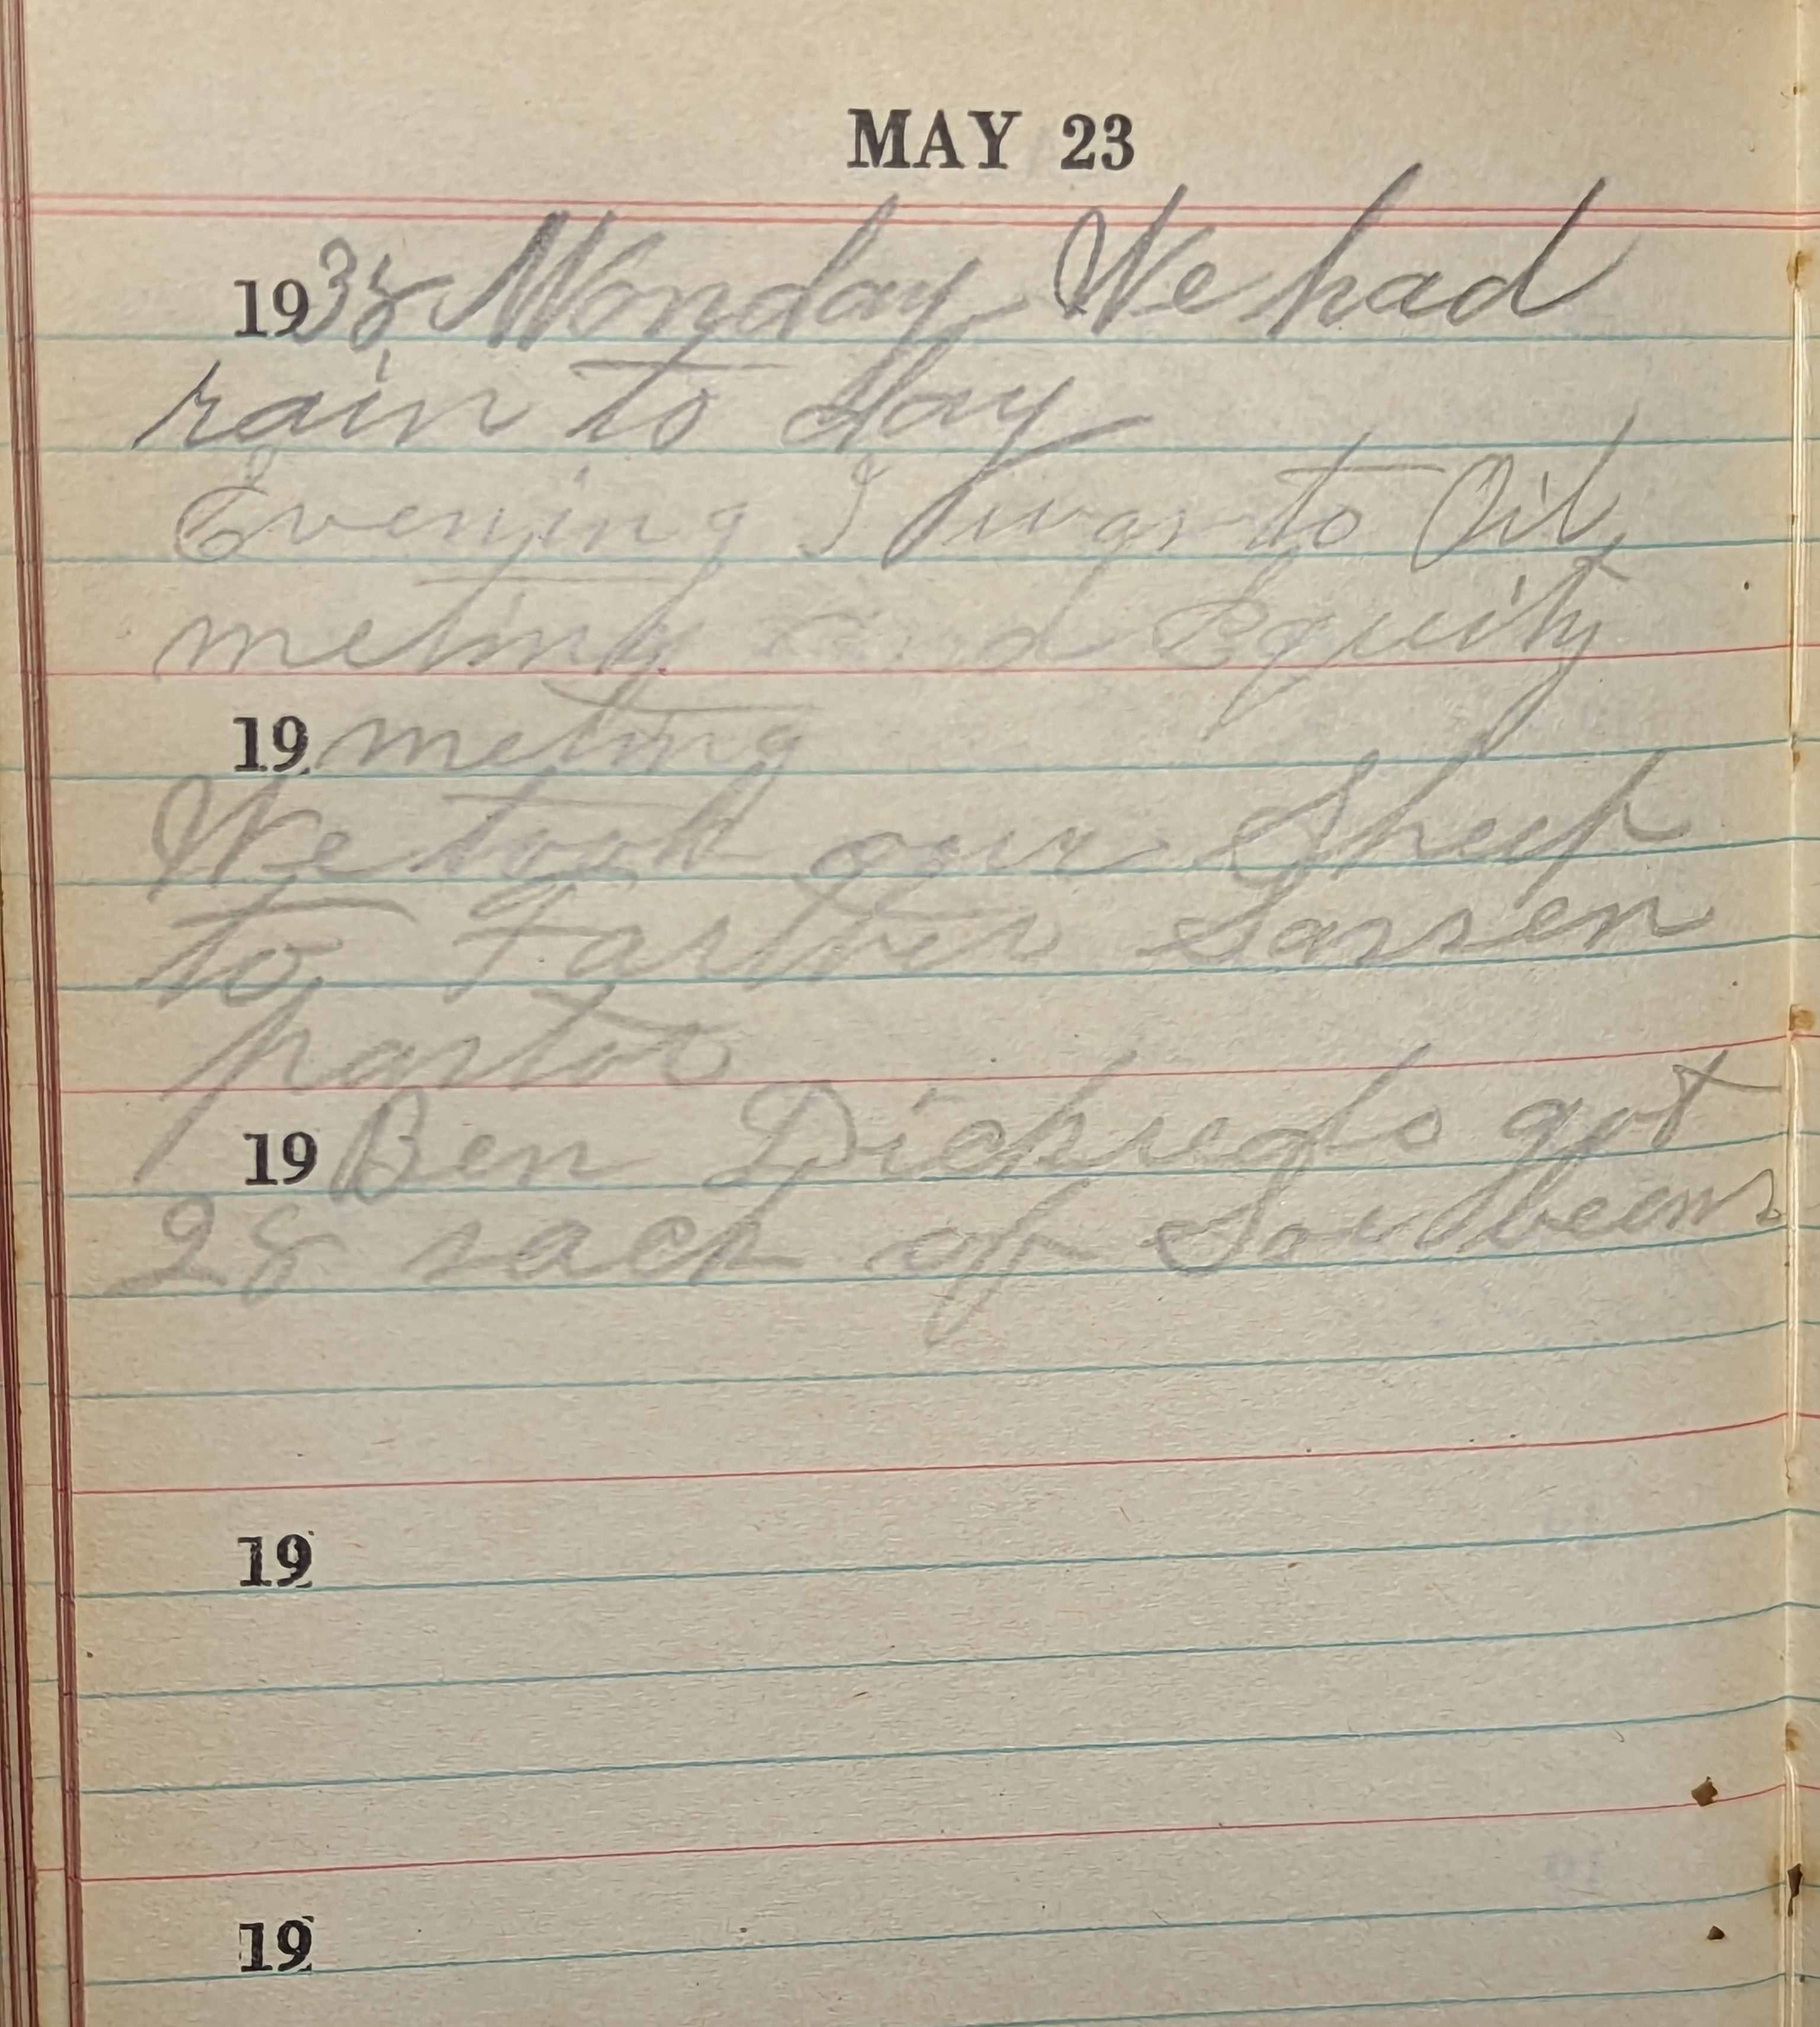 MAY 23
1938 Monday We had
rain to day
Evening I was to Oil
meting and Equity
19 meting
We took our Sheep
to Farther Larsen
19 Ben got
28 sack of Soubeens
19
19